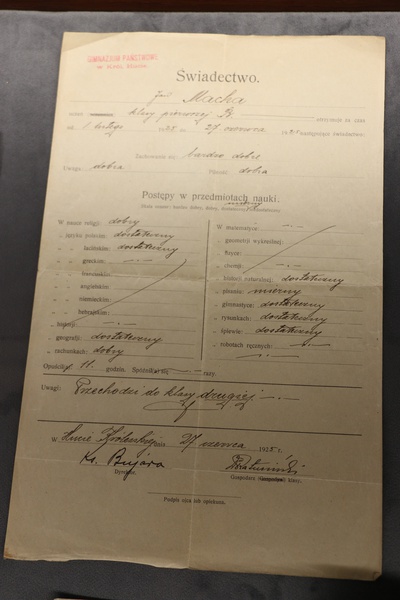 GIMNAZJUM PAŃSTWOWE
Świadectwo.
Jan Macha
uczeń klasy pierwszej B. otrzymuje za czas
od 1 lutego 1925 do 27 czerwca 1925 następujące świadectwo:
Zachowanie się: bardzo dobre
Uwaga: dobra Pilność: dobra
Postępy w przedmiotach nauki.
mierny
W nauce religji: dobry
„ języku polskim: dostateczny
„ „ łacińskim: dostateczny
„ „ greckim:
„ „ francuskim:
„ „ angielskim:
„ „ niemieckim:
„ „ hebrajskim:
„ historji:
„ geografji: dostateczny
„ rachunkach: dobry
W matematyce:
„ geometrji wykreślnej:
„ fizyce:
„ chemji:
„ historji naturalnej: dostateczny
„ pisaniu: mierny
„ gimnastyce: dostateczny
„ rysunkach: dostateczny
„ śpiewie: dostateczny
„ robotach ręcznych:
Opuścił 11 godzin. Spóźnił się razy.
Uwagi: Przechodzi do klasy drugiej
W Hucie Królewskiej dnia 27 czerwca 1925 r.
Ks. Bujara
Dyrektor. Gospodarz klasy.
Podpis ojca lub opiekuna.